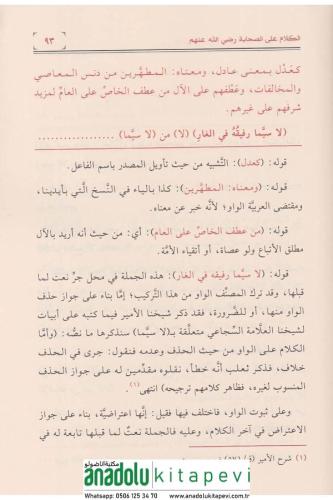 الكلام على الصحابة رضي الله عنهم
٩٣
كعَدْل بمعنى عادل، ومعناه: المطهَّرين من دنس المعاصي
والمخالفات، وعَطْفهم على الآل من عطف الخاصِّ على العامِّ لمزيد
شرفهم على غيرهم.
(لا سِيَّما رفيقُهُ في الغارِ) (لا) من (لا سيَّما) .................
قوله: (كعدل): التَّشبيه من حيث تأويل المصدر باسم الفاعل.
قوله: (ومعناه: المطهَّرين): كذا بالياء في النُّسخ الَّتي بأيدينا،
ومقتضى العربيَّة الواو؛ لأنَّه خبر عن معناه.
قوله: (من عطف الخاصِّ على العامِّ): أي: من حيث أنه أريد بالآل
مطلق الأتباع ولو عصاة، أو أتقياء الأمَّة.
قوله: (لا سيَّما رفيقه في الغار): هذه الجملة في محل جرٍّ نعت لما
قبلها، وقد ترك المصنِّف الواو من هذا التركيب؛ إمَّا بناء على جواز حذف
الواو منها، أو للضَّرورة، فقد ذكر شيخنا الأمير فيما كتبه على أبيات
لشيخنا العلَّامة السِّجاعي متعلِّقة بـ(لا سيَّما) سنذكرها ما نصُّه: (وأمَّا
الكلام على الواو من حيث الحذف وعدمه فنقول: جرى في الحذف
خلاف، فذكر ثعلب أنَّه خطأ، نقلوه مقدِّمين له على القول بجواز الحذف
المنسوب لغيره، فظاهر كلامهم ترجيحه) انتهى(١).
وعلى ثبوت الواو، فاختلف فيها فقيل: إنَّها اعتراضيَّة، بناء على جواز
الاعتراض في آخر الكلام، وعليه فالجملة نعتٌ لما قبلها تابعة له في
(١) شرح الأمير
مكتبة الأناضول
anadolukitapevi
Whatsapp: 0506 125 34 70 - www.anadolukitapevi.com.tr